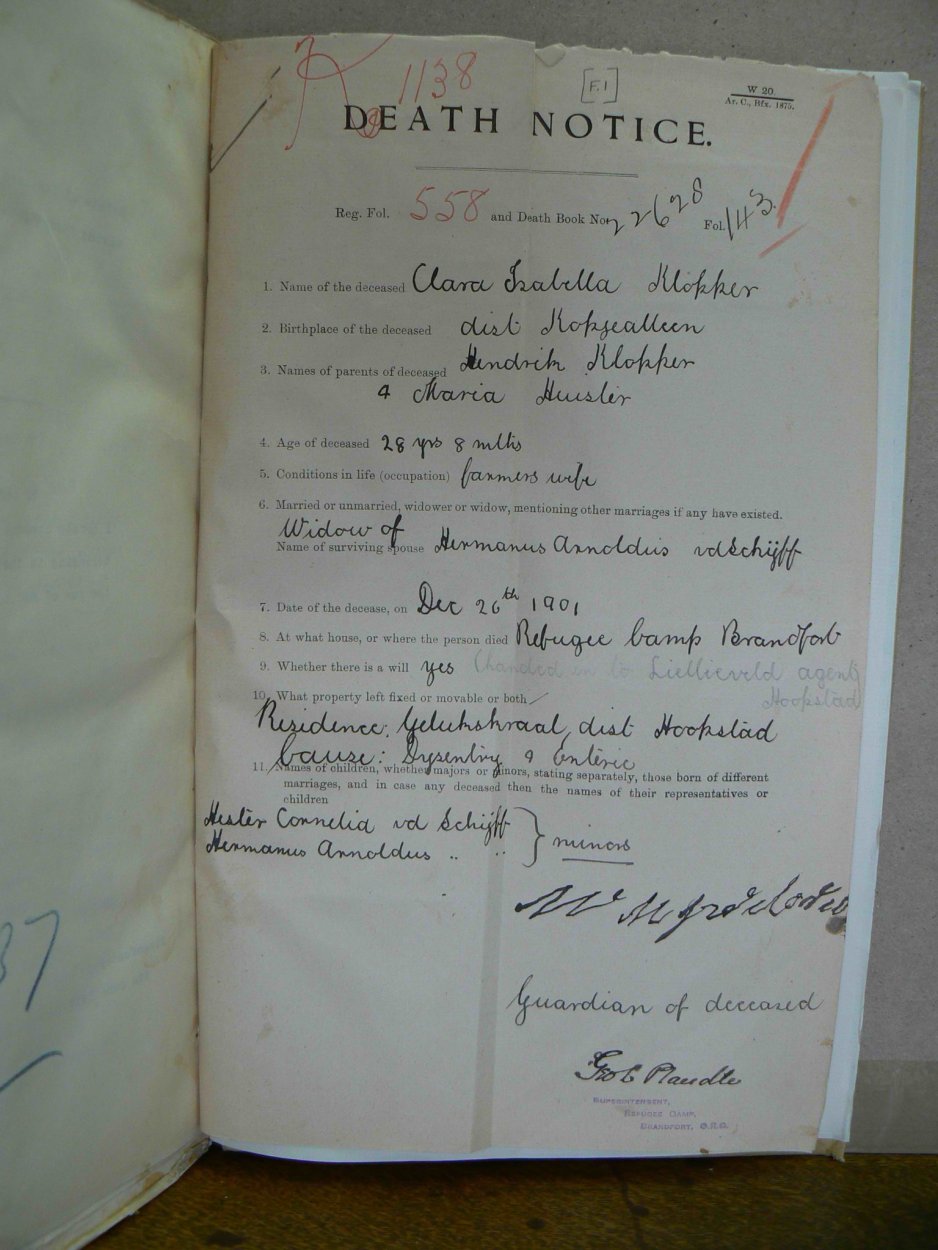 1138
[F.1]
W 20.
Ar. C., Bfx. 1875.
DEATH NOTICE.
Reg. Fol. 558 and Death Book No. 22628 Fol. 143.
1. Name of the deceased Clara Isabella Klopper
2. Birthplace of the deceased dist Kopjealleen
3. Names of parents of deceased Hendrik Klopper
& Maria Huister
4. Age of deceased 28 yrs 8 mths
5. Conditions in life (occupation) farmers wife
6. Married or unmarried, widower or widow, mentioning other marriages if any have existed.
Widow of
Name of surviving spouse Hermanus Arnoldus vd Schijff
7. Date of the decease, on Dec 26th 1901
8. At what house, or where the person died Refugee Camp Brandfort
9. Whether there is a will yes (handed in to agent
Hoopstad
10. What property left fixed or movable or both
Residence: Gelukskraal, dist Hoopstad
Cause: Dysentry & Enteric
11. Names of children, whether majors or minors, stating separately, those born of different
marriages, and in case any deceased then the names of their representatives or
children
Hester Cornelia vd Schijff
Hermanus Arnoldus " " } minors
Guardian of deceased
SUPERINTENDENT,
REFUGEE CAMP,
BRANDFORT, O.R.C.
37